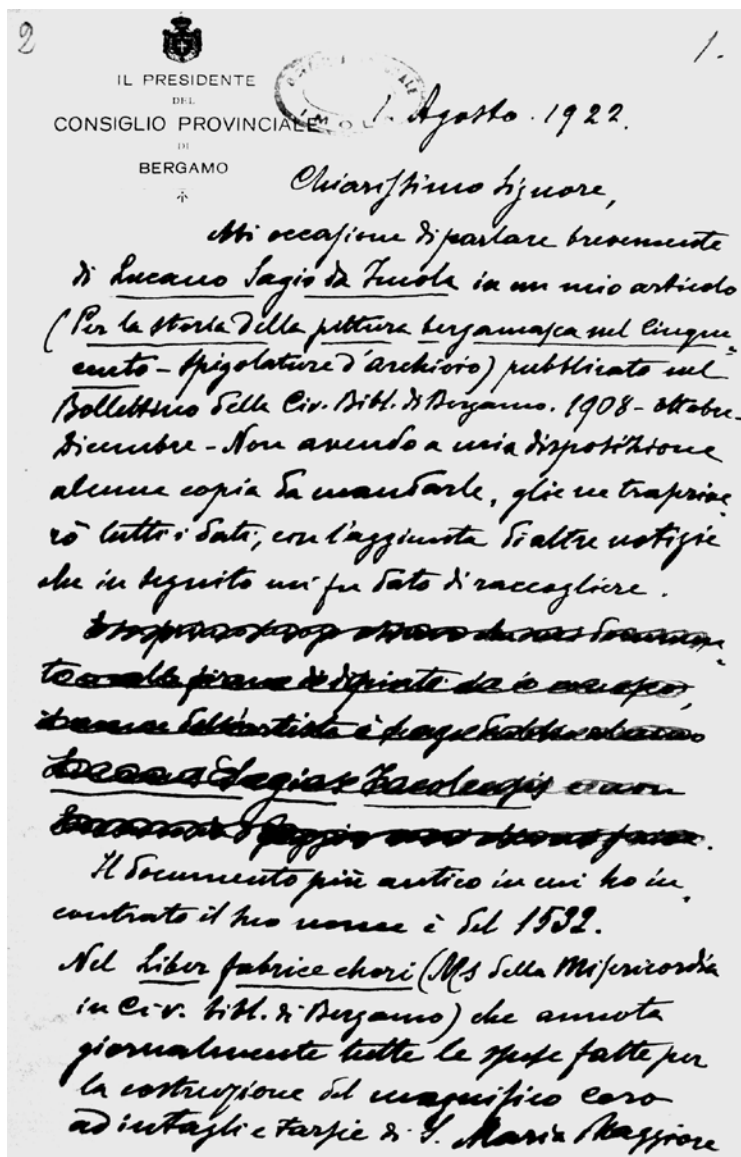 2
1.
IL PRESIDENTE
DEL
CONSIGLIO PROVINCIALE
DI
BERGAMO
IMOLA
1 Agosto. 1922.
Chiarissimo Signore,
Mi occasione di parlare brevemente
di Lucano Sagio da Imola in un mio articolo
(Per la storia della pittura bergamasca nel Cinque-
cento - Spigolature d'Archivio) pubblicato nel
Bollettino della Civ. Bibl. di Bergamo. 1908 - ottobre-
Dicembre - Non avendo a mia disposizione
alcuna copia da mandarle, glie ne trascrive-
rò tutti i dati, con l'aggiunta di altre notizie
che in seguito mi fu dato di raccogliere.
dell'artista è
Imolensis e non
Il documento più antico in cui ho in-
contrato il suo nome è del 1532.
Nel Liber fabrice chori (Ms della Misericordia
in Civ. Bibl. di Bergamo) che annota
giornalmente tutte le spese fatte per
la costruzione del magnifico Coro
ad intagli e tarsie di S. Maria Maggiore